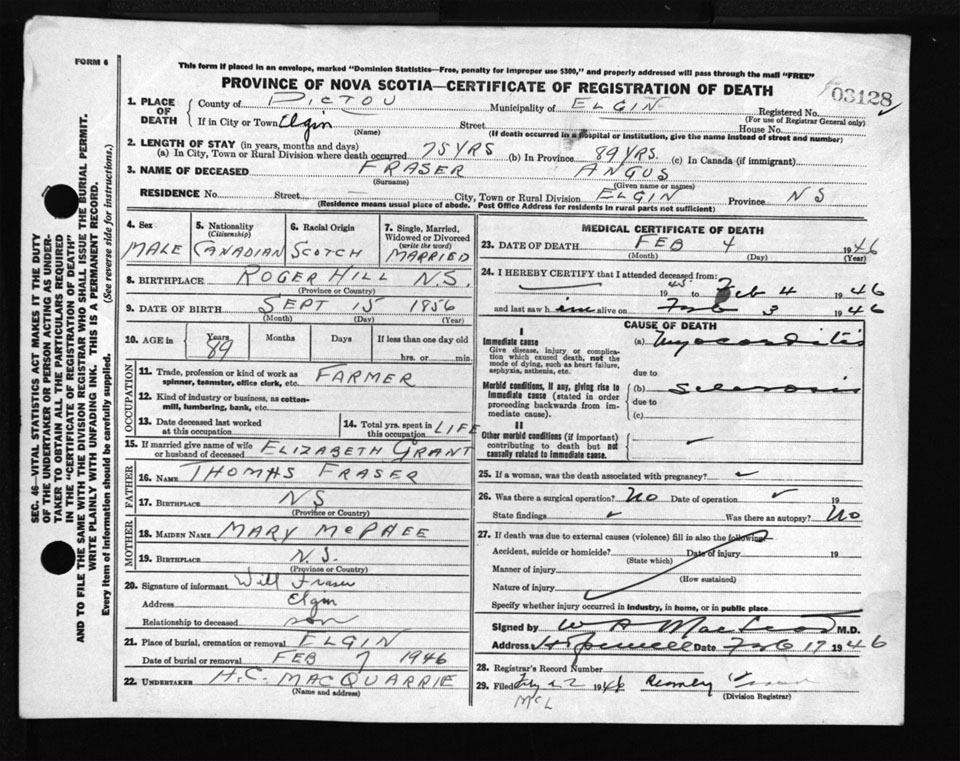 FORM 6
This form if placed in an envelope, marked "Dominion Statistics—Free, penalty for improper use $300," and properly addressed will pass through the mail "FREE"
PROVINCE OF NOVA SCOTIA—CERTIFICATE OF REGISTRATION OF DEATH
03128
1. PLACE OF DEATH
County of PICTOU Municipality of ELGIN Registered No.
(For use of Registrar General only)
If in City or Town Elgin Street House No.
(Name) (If death occurred in a hospital or institution, give the name instead of street and number)
2. LENGTH OF STAY (in years, months and days)
(a) In City, Town or Rural Division where death occurred 75 YRS (b) In Province 89 YRS. (c) In Canada (if immigrant)
3. NAME OF DECEASED FRASER ANGUS
(Surname) (Given name or names)
RESIDENCE No. Street City, Town or Rural Division ELGIN Province NS
(Residence means usual place of abode. Post Office Address for residents in rural parts not sufficient)
4. Sex
MALE
5. Nationality
(Citizenship)
CANADIAN
6. Racial Origin
SCOTCH
7. Single, Married, Widowed or Divorced
(write the word)
MARRIED
8. BIRTHPLACE ROGER HILL N.S.
(Province or Country)
9. DATE OF BIRTH SEPT 15 1856
(Month) (Day) (Year)
10. AGE in
Years Months Days If less than one day old
89 hrs. or min.
OCCUPATION
11. Trade, profession or kind of work as spinner, teamster, office clerk, etc. FARMER
12. Kind of industry or business, as cotton-mill, lumbering, bank, etc.
13. Date deceased last worked at this occupation
14. Total yrs. spent in this occupation LIFE
15. If married give name of wife or husband of deceased ELIZABETH GRANT
FATHER
16. NAME THOMAS FRASER
17. BIRTHPLACE NS
(Province or Country)
MOTHER
18. MAIDEN NAME MARY McPHEE
19. BIRTHPLACE N.S.
(Province or Country)
20. Signature of informant Will Fraser
Address Elgin
Relationship to deceased son
21. Place of burial, cremation or removal ELGIN
Date of burial or removal FEB 7 1946
22. UNDERTAKER H.C. MACQUARRIE
(Name and address)
MEDICAL CERTIFICATE OF DEATH
23. DATE OF DEATH FEB 4 1946
(Month) (Day) (Year)
24. I HEREBY CERTIFY that I attended deceased from:
1945 to Feb 4 1946
and last saw h im alive on Feb 3 1946
CAUSE OF DEATH
I
Immediate cause
Give disease, injury or complication which caused death, not the mode of dying, such as heart failure, asphyxia, asthenia, etc.
(a) Myocarditis
due to
Morbid conditions, if any, giving rise to immediate cause (stated in order proceeding backwards from immediate cause).
(b) Sclerosis
due to
(c)
II
Other morbid conditions (if important) contributing to death but not causally related to immediate cause.
25. If a woman, was the death associated with pregnancy?
26. Was there a surgical operation? No Date of operation 19
State findings Was there an autopsy? No
27. If death was due to external causes (violence) fill in also the following
Accident, suicide or homicide? Date of injury 19
(State which)
Manner of injury
(How sustained)
Nature of injury
Specify whether injury occurred in industry, in home, or in public place
Signed by W A MacLeod M.D.
Address Hopewell Date Feb 19 1946
28. Registrar's Record Number
29. Filed 1946
(Division Registrar)
McL
SEC. 46—VITAL STATISTICS ACT MAKES IT THE DUTY
OF THE UNDERTAKER OR PERSON ACTING AS UNDER-
TAKER TO OBTAIN ALL THE PARTICULARS REQUIRED
IN THE "CERTIFICATE OF REGISTRATION OF DEATH"
AND TO FILE THE SAME WITH THE DIVISION REGISTRAR WHO SHALL ISSUE THE BURIAL PERMIT.
WRITE PLAINLY WITH UNFADING INK. THIS IS A PERMANENT RECORD.
Every item of information should be carefully supplied. (See reverse side for instructions.)